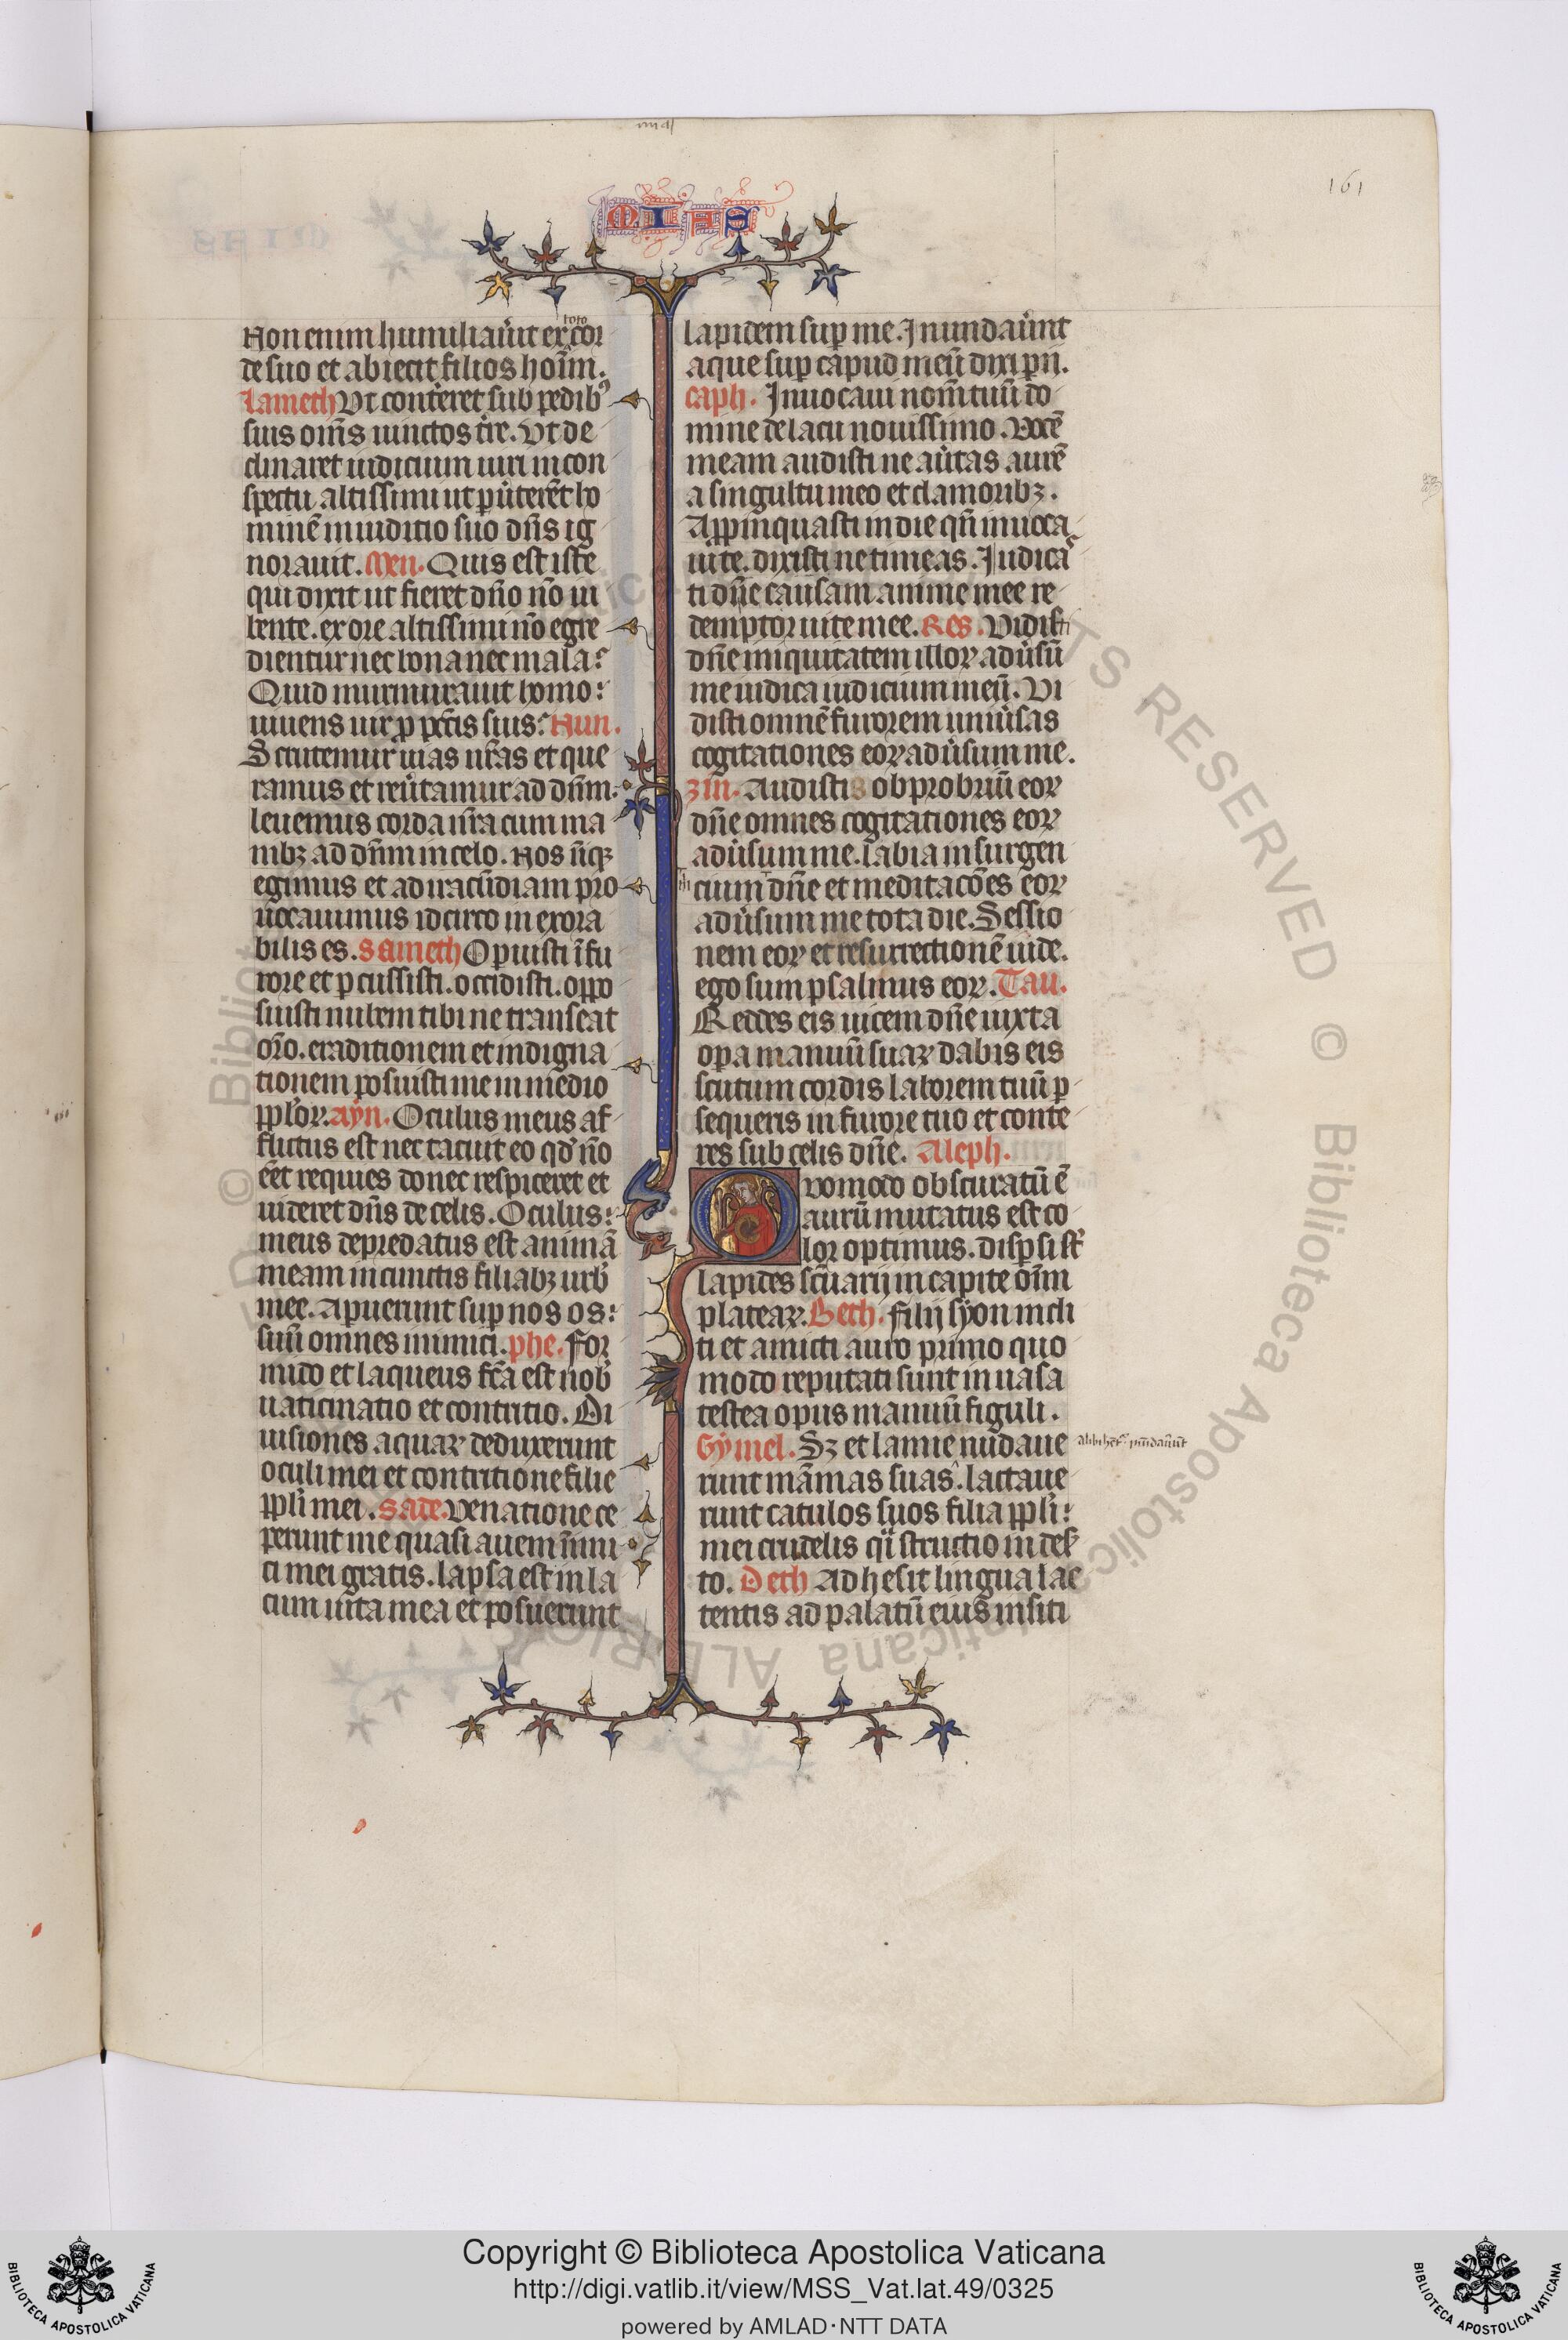 MIAS
161
Non enim humiliau͛it ex cor
toto
de suo et abiecit filios hoı̄m.
Lameth Vt cont͛eret sub pedibꝰ
suis om̄s uinctos t͛re. Vt de
clinaret iudicium uiri in con
spectu altissimi ut ꝑu͛teret ho
minē in iuditio suo dn̄s ig
norauit. Men. Quis est iste
qui dixit ut fieret dn̄o nō iu
bente. ex ore altissimi nō egre
dientur nec bona nec mala:
Quid murmurauit homo:
uiuens uir ꝓ pctīs suis: Nun.
Scrutemur uias nr̄as et que
ramus et reu͛tamur ad dn̄m.
leuemus corda nr̄a cum ma
nibꝫ ad dn̄m in celo. Nos iniqꝫ
egimus et ad iracūdiam pro
uocauimus idcirco inexora
bilis es. Sameth Operuisti ī fu
rore et percussisti. occidisti. oppo
suisti nubem tibi ne transeat
or̄o. eraditionem et indigna
tionem posuisti me in medio
ppl̓oꝝ. Ayn. Oculus meus af
flictus est nec tacuit eo qd̓ nō
eēt requies donec respiceret et
uideret dn̄s de celis. Oculus:
meus depredatus est animā
meam in cunctis filiabꝫ urb̓
mee. Aperuerunt suꝑ nos os:
suū omnes inimici. phe. For
mido et laqueus fc̄a est nob̓
uaticinatio et contritio. Di
uisiones aquaꝝ deduxerunt
oculi mei et contritione filie
ppl̓i mei. Sade. Venatione ce
perunt me quasi auem inimi
ci mei gratis. lapsa est in la
cum uita mea et posuerunt
lapidem suꝑ me. Inundau͛unt
aque suꝑ capud meū dixi ꝑii.
caph. Inuocaui nom̄ tuū do
mine de lacu nouissimo. Vocē
meam audisti ne au͛tas aurē
a singultu meo et clamoribꝫ.
Appinquasti in die qn̄ inuoca
ui te. dixisti ne timeas. Iudica
ti dn̄e causam anime mee re
demptor uite mee. Res. Vidisti
dn̄e iniquitatem illoꝝ adu͛sū
me iudica iudicium meū. Vi
disti omnē furorem uniu͛sas
cogitationes eoꝝ adu͛sum me.
zin. Audistis obprobriū eoꝝ
dn̄e omnes cogitationes eoꝝ
adu͛sum me. labia insurgen
cium dn̄e et meditacōes eoꝝ
adu͛sum me tota die. Sessio
nem eoꝝ et resurrectionē uide.
ego sum psalmus eoꝝ. Tau.
Reddes eis uicem dn̄e iuxta
oꝑa manuū suaꝝ dabis eis
scutum cordis laborem tuū ꝑ
sequeris in furore tuo et conte
res sub celis dn̄e. Aleph.
Quomodo obscuratū ē
aurū mutatus est co
lor optimus. dispersi st̄
lapides sc̄uarij in capite oı̄m
plateaꝝ. Beth. filij syon incli
ti et amicti auro primo quo
modo reputati sunt in uasa
testea opus manuū figuli.
Gymel. Sꝫ et lamie nudaue
runt mām̄as suas. lactaue
runt catulos suos filia ppl̓i:
mei crudelis qi structio in des̓
to. Deth Adhesit lingua lac
tentis ad palatū eius in siti
Copyright © Biblioteca Apostolica Vaticana
http://digi.vatlib.it/view/MSS_Vat.lat.49/0325
powered by AMLAD·NTT DATA
BIBLIOTECA APOSTOLICA VATICANA
BIBLIOTECA APOSTOLICA VATICANA